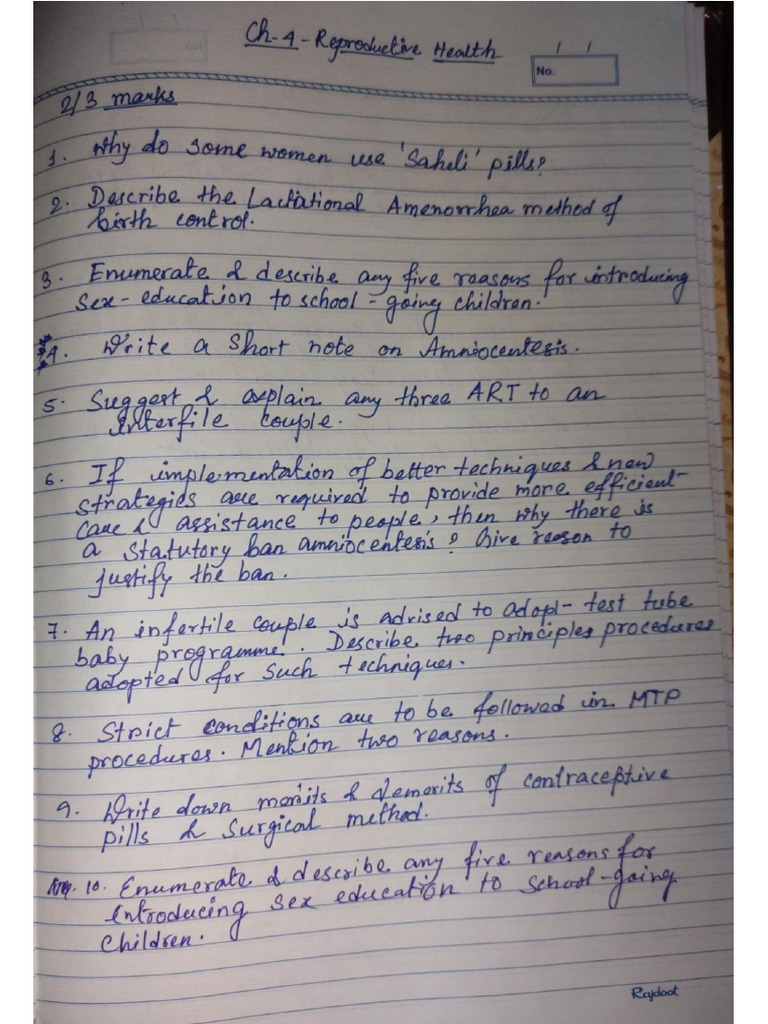 Ch-4-Reproductive Health
No.
2/3 marks
1. Why do some women use 'Saheli' pills?
2. Describe the Lactational Amenorrhea method of
birth control.
3. Enumerate & describe any five reasons for introducing
sex-education to school-going children.
4. Write a short note on Amniocentesis.
5. Suggest & explain any three ART to an
interfile couple.
6. If implementation of better techniques & new
strategids are required to provide more efficient
care & assistance to people, then why there is
a statutory ban amniocentesis? Give reason to
justify the ban.
7. An infertile couple is advised to adopt test tube
baby programme. Describe two principles procedures
adopted for such techniques.
8. Strict conditions are to be followed in MTP
procedures. Mention two reasons.
9. Write down merits & demerits of contraceptive
pills & surgical method.
10. Enumerate & describe any five reasons for
introducing sex education to school-going
children.
Rajdoot